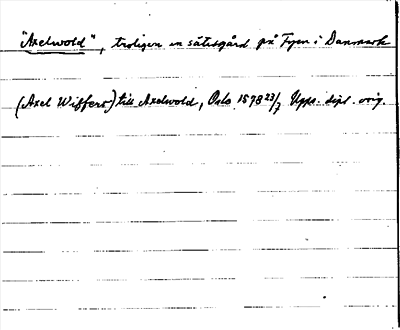 "Axelwold", troligen en sätesgård på Fyen i Danmark
(Axel Wiffert) till Axelwold, Oslo 1578 23/7 Upps. dipl. orig.